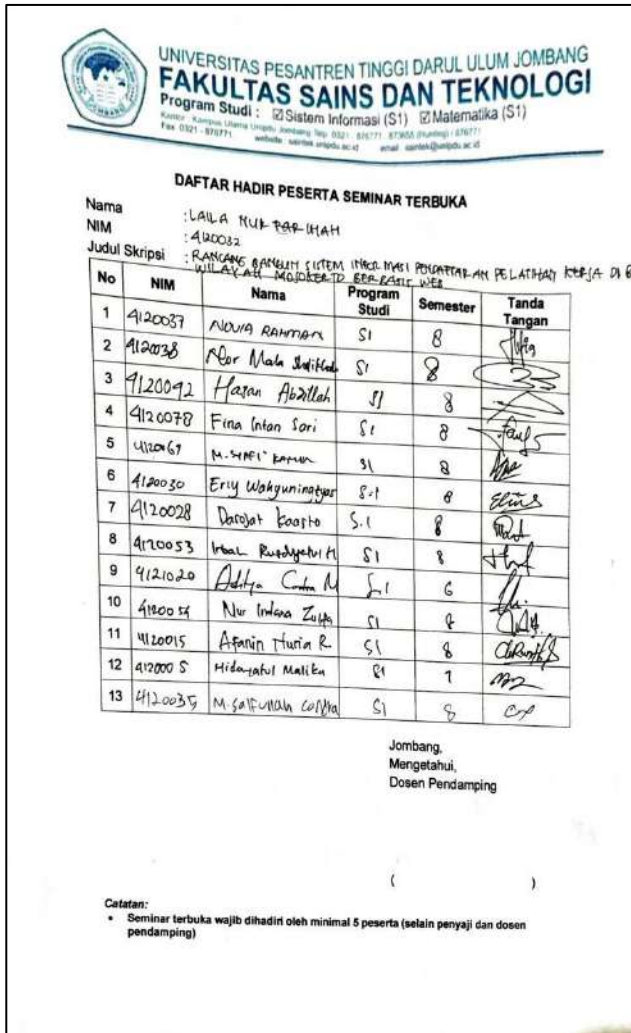 UNIVERSITAS PESANTREN TINGGI DARUL ULUM JOMBANG
FAKULTAS SAINS DAN TEKNOLOGI
Program Studi : ☑ Sistem Informasi (S1) ☑ Matematika (S1)
Kantor : Kampus Utama Unipdu Jombang Telp 0321 - 876771
Fax 0321 - 876771 website : saintek.unipdu.ac.id email saintek@unipdu.ac.id
DAFTAR HADIR PESERTA SEMINAR TERBUKA
Nama : LAILA NUR FARIHAH
NIM : 4120032
Judul Skripsi : RANCANG BANGUN SISTEM INFORMASI PENDAFTARAN PELATIHAN KERJA DI
WILAYAH MOJOKERTO BERBASIS WEB
No NIM Nama Program Studi Semester Tanda Tangan
1 4120037 NOVIA RAHMAN S1 8
2 4120038 Nor Mala S1 8
3 4120092 Hasan Abdillah S1 8
4 4120078 Fina Intan Sari S1 8
5 4120067 M. S1 8
6 4120030 Erly Wahyuningtyas S.1 8
7 4120028 Darojat S.1 8
8 4120053 S1 8
9 4121020 Aditya M S.1 6
10 4120054 Nur Indana Zulfa S1 8
11 4120015 Afanin R S1 8
12 4120005 Hidayatul Malika S1 7
13 4120035 M. S1 8
Jombang,
Mengetahui,
Dosen Pendamping
( )
Catatan:
• Seminar terbuka wajib dihadiri oleh minimal 5 peserta (selain penyaji dan dosen
pendamping)